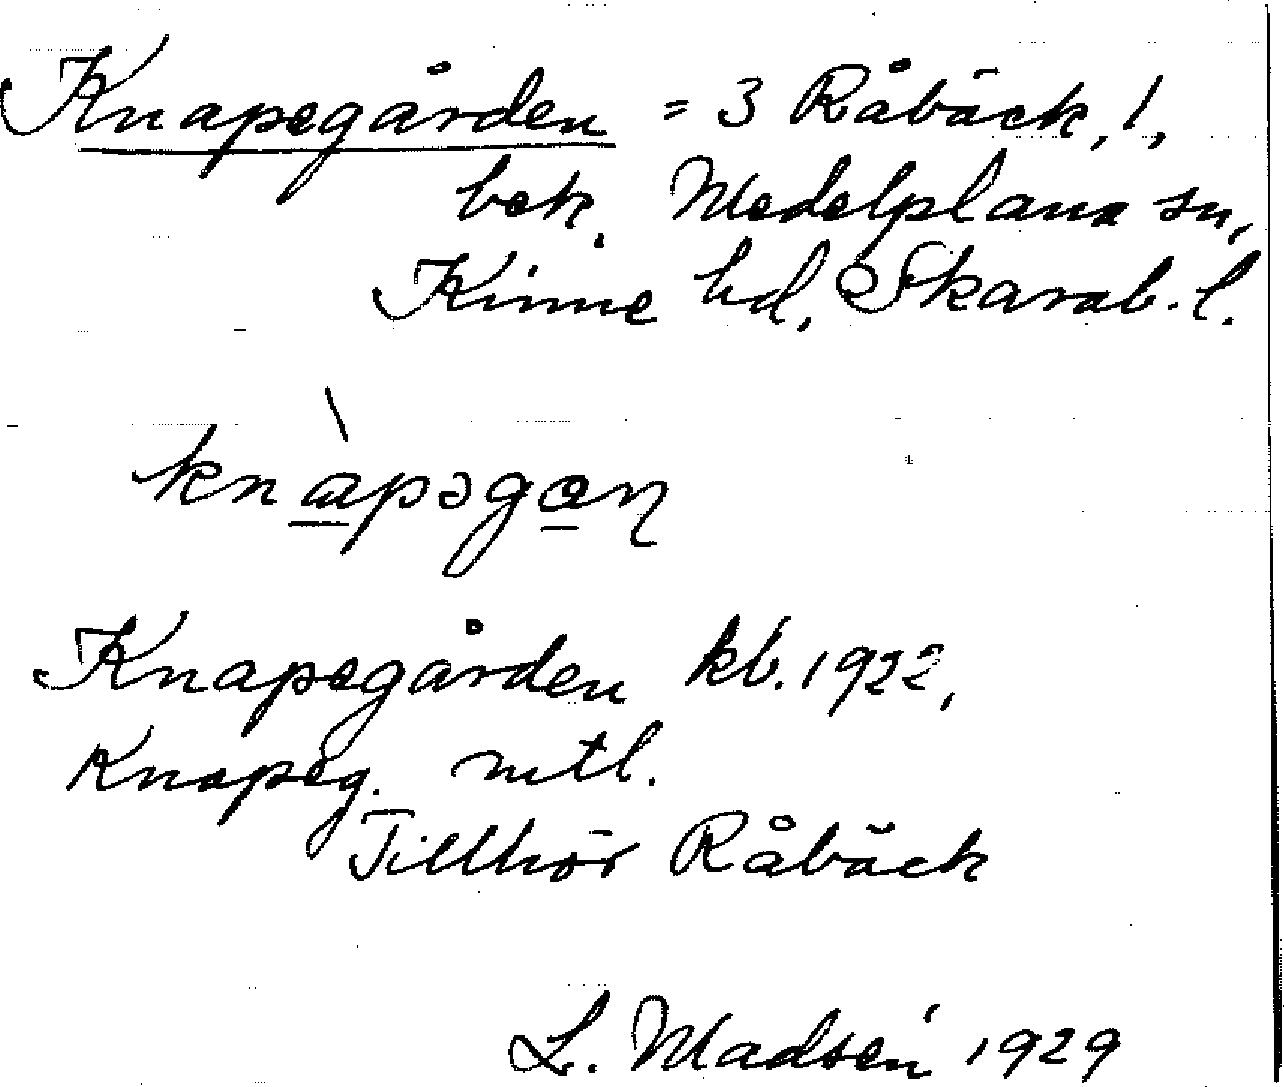 Knapegården = 3 Råbäck, 1,
bek. Medelplana sn,
Kinne hd, Skarab. l.
knàpəgɑɳ
Knapegården kb. 1922,
Knapeg. mtl.
Tillhör Råbäck
L. Madsén 1929